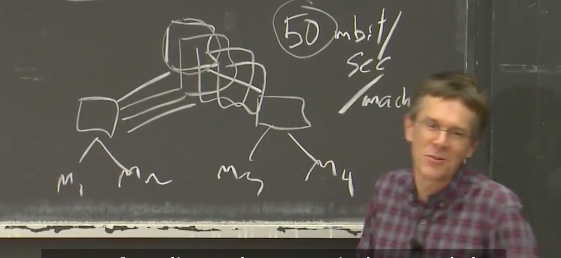 50 mbit/
sec
/mach
M1
M2
M3
M4